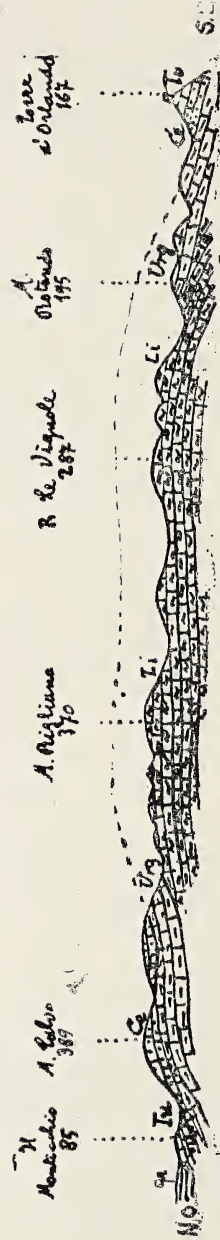 Il
Monticchio
85
M. Calvo
389
M. Rigliano
370
R. Le Vignole
287
M.
Rotondo
195
Torre
d'Orlando
167
N.O.
q
Tu
Ce
Urg
Li
Li
Urg
Ce
Tu